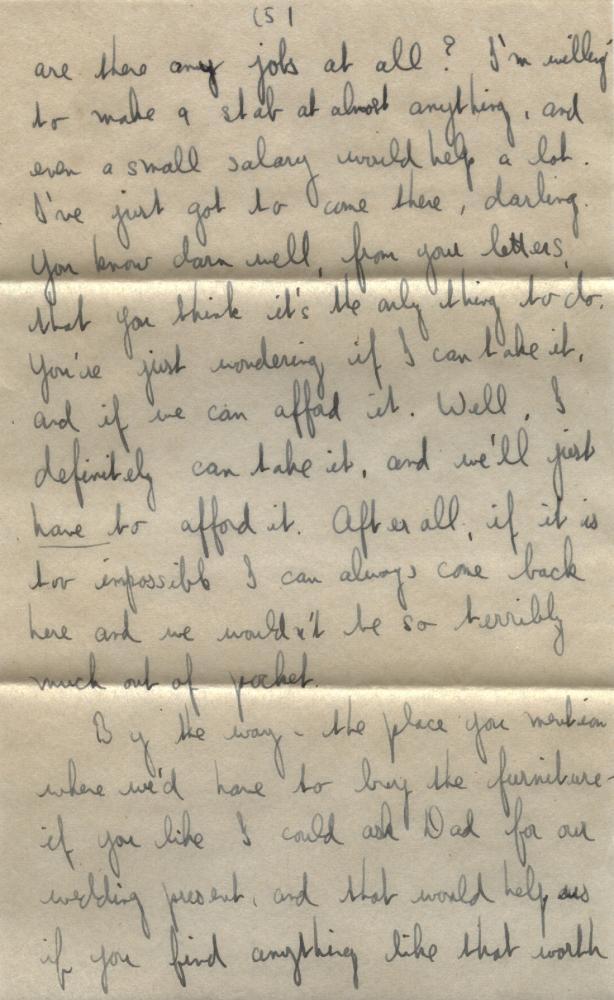 (5)
are there any jobs at all? I'm willing
to make a stab at almost anything, and
even a small salary would help a lot.
I've just got to come there, darling.
You know darn well, from your letters,
that you think it's the only thing to do.
You're just wondering if I can take it,
and if we can afford it. Well, I
definitely can take it, and we'll just
have to afford it. After all, if it is
too impossible I can always come back
here and we wouldn't be so terribly
much out of pocket.
By the way - the place you mention
where we'd have to buy the furniture -
if you like I could ask Dad for our
wedding present, and that would help us
if you find anything like that worth